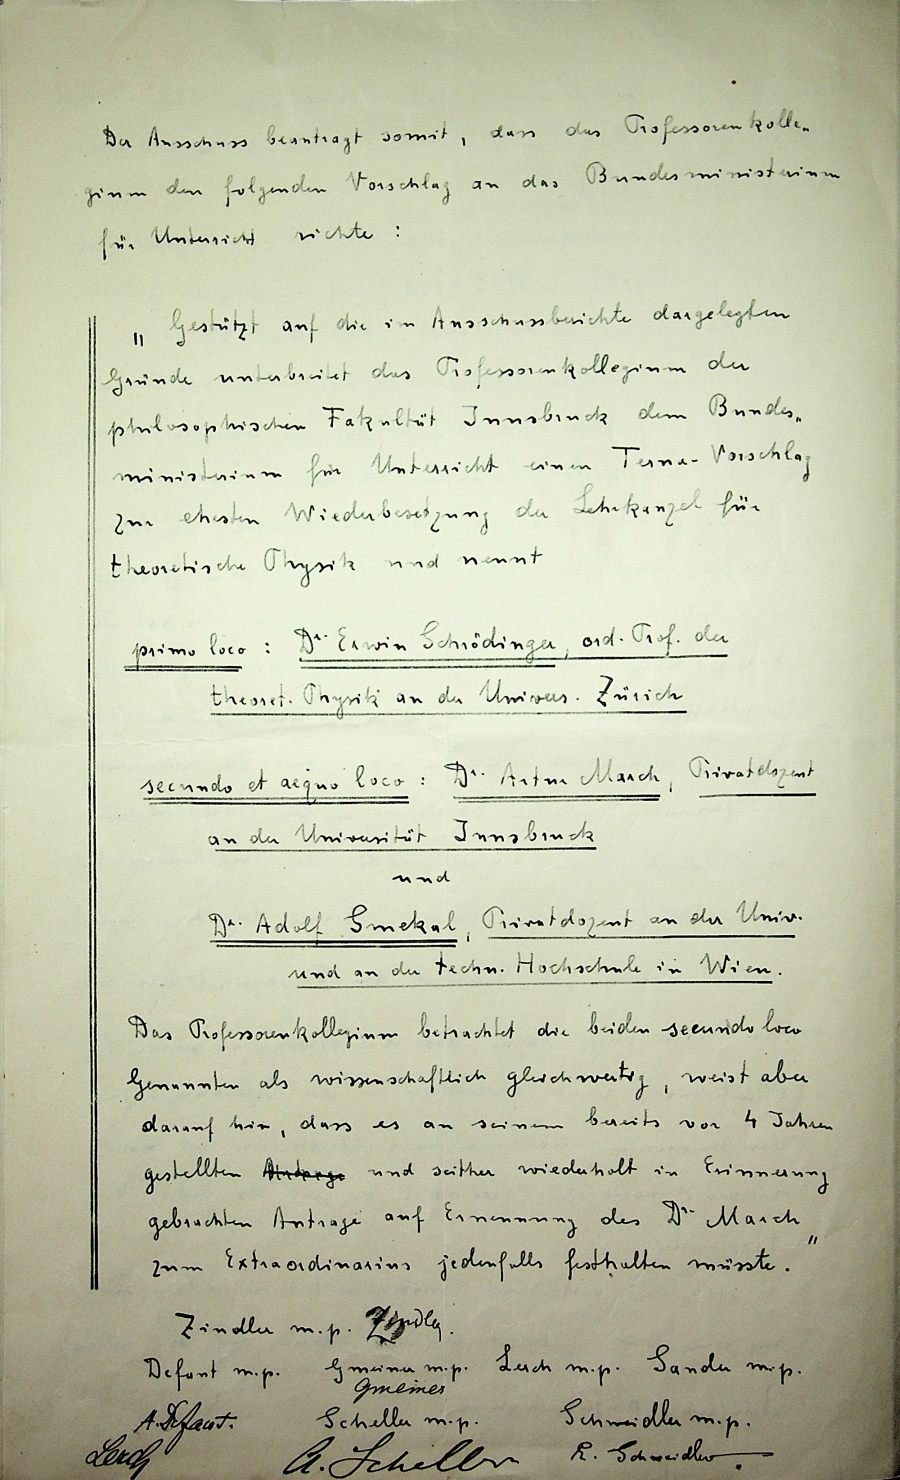 Der Ausschuss beantragt somit, dass das Professorenkolle„
gium den folgenden Vorschlag an das Bundesministerium
für Unterricht richte :
„ Gestützt auf die im Ausschussberichte dargelegten
Gründe unterbreitet das Professorenkollegium der
philosophischen Fakultät Innsbruck dem Bundes„
ministerium für Unterricht einen Terna-Vorschlag
zur ehesten Wiederbesetzung der Lehrkanzel für
theoretische Physik und nennt
primo loco : Dr. Erwin Schrödinger, ord. Prof. der
theoret. Physik an der Univers. Zürich
secundo et aequo loco : Dr. Artur March, Privatdozent
an der Universität Innsbruck
und
Dr. Adolf Smekal, Privatdozent an der Univ.
und an der techn. Hochschule in Wien.
Das Professorenkollegium betrachtet die beiden secundo loco
Genannten als wissenschaftlich gleichwertig, weist aber
darauf hin, dass es an seinem bereits vor 4 Jahren
gestellten und seither wiederholt in Erinnerung
gebrachten Antrage auf Ernennung des Dr. March
zum Extraordinarius jedenfalls festhalten müsste. "
Zindler m.p. Zindler.
Defant m.p. Gmeiner m.p. Lerch m.p. Sander m.p.
Gmeiner
A. Defant. Scheller m.p. Schweidler m.p.
Lerch A. Scheller E. Schweidler